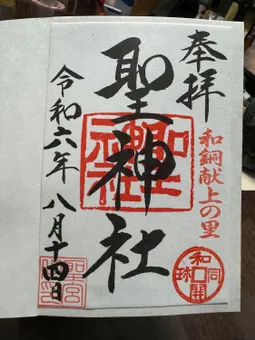 奉拝
和銅献上の里
聖神社
令和六年八月十四日
和同開珎